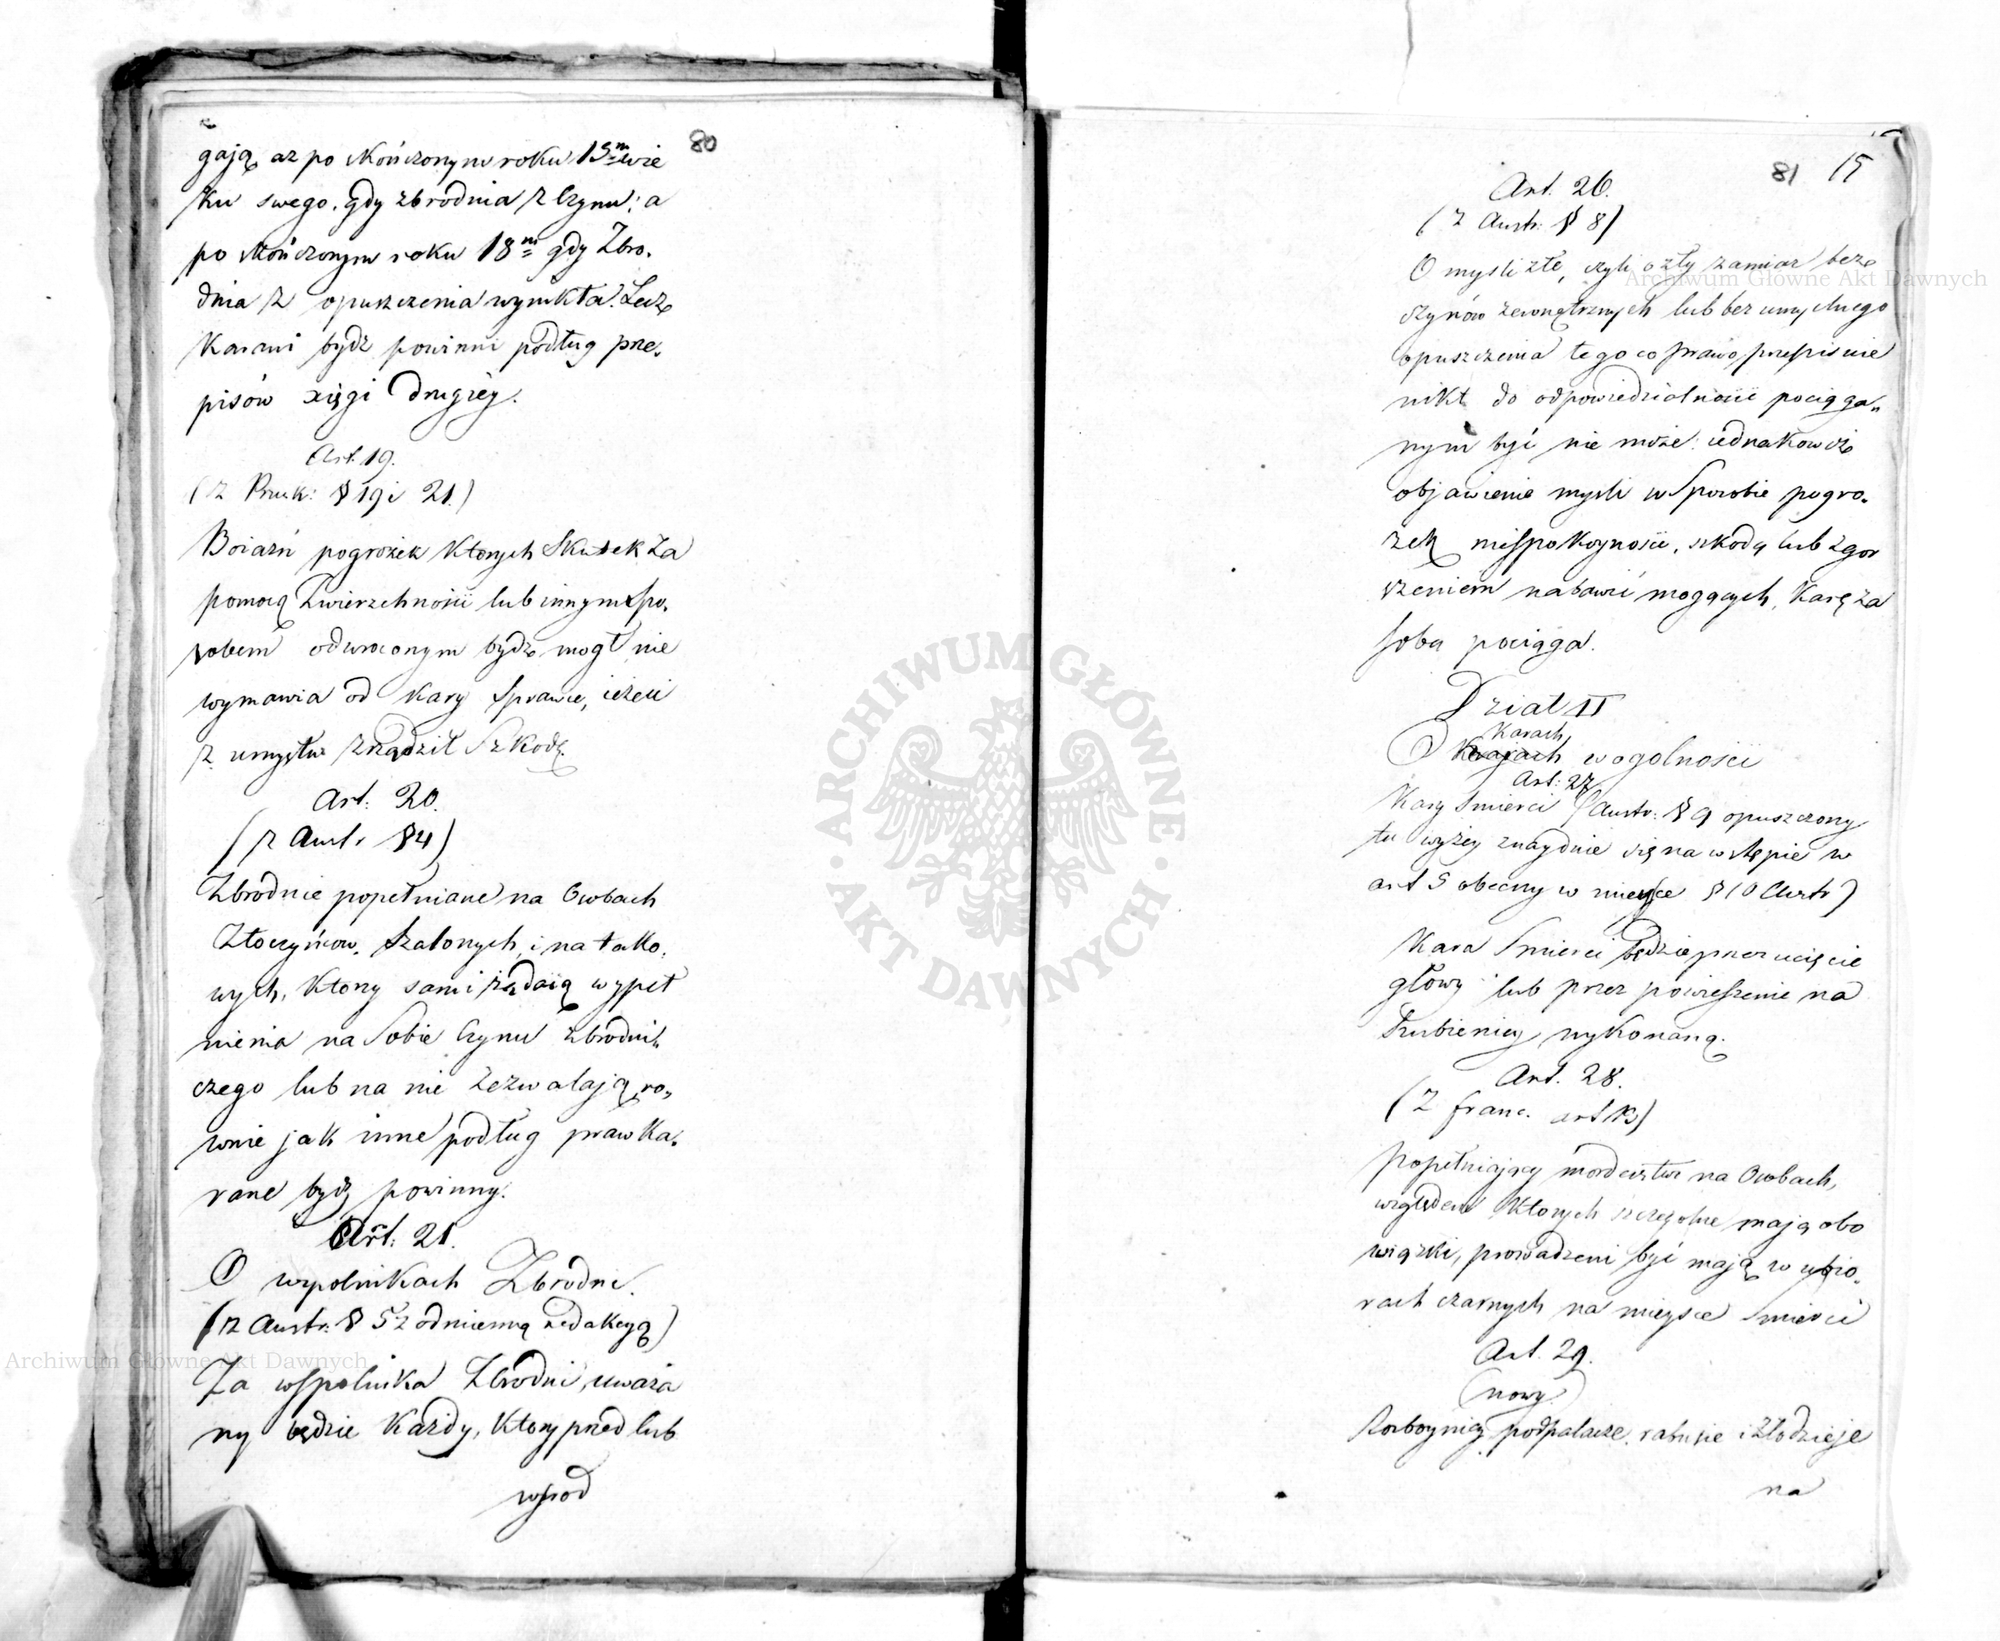 80
gają aż po skończonym roku 15m wie
ku swego, gdy zbrodnia z Czynu; a
po skończonym roku 18m gdy Zbro.
dnia z opuszczenia wynikła. Lecz
Karani bydź powinni podług prze.
pisów xięgi drugiéy.
Art. 19.
(z Prusk: § 19 i 21.)
Boiaźń pogróżek których Skutek Za
pomocą Zwierzchności lub innym spo.
sobem odwróconym bydź mogł nie
wymawia od Kary Sprawcę, ieżeli
z umysłu zrządził Szkodę.
Art: 20.
(z Austr § 4)
Zbrodnie popełniane na Osobach
Złoczyńców, Szalonych, i na tako.
wych, którzy sami żądaią wypeł
nienia na Sobie Czynu zbrodni.
czego lub na nie zezwalają, ro.
wnie jak inne podług praw ka.
rane bydź powinny.
Art: 21.
O wspolnikach Zbrodni.
(z Austr: § 5 z odmienną redakcyą)
Za wspolnika Zbrodni, uważa
ny będzie Każdy, który przed lub
wśrod
81 15
Art. 26.
(z Austr: § 8)
O myśli złe, czyli o zły zamiar bez
czynów zewnętrznych lub bez umyślnego
opuszczenia tego co prawo przepisuie
nikt do odpowiedzialności pociąga.
nym być nie może: iednakowoż
objawienie myśli w Sposobie pogro.
żek niespokoyności, szkodą lub zgor
szeniem nabawić mogących, karę za
sobą pociąga.
Dział II
Karach
O Karach w ogolności
Art: 27
Kary śmierci (Austr: § 9 opuszczony
tu wyżey znaydzie się na wstępie w
art 5 obecny w miejsce § 10 Austr)
Kara Śmierci będzie przez ucięcie
głowy lub przez powieszenie na
Szubienicy wykonaną.
Art. 28.
(z franc. art 13)
Popełniający morderstwo na Osobach,
względem których szczególne mają obo
wiązki, prowadzeni być mają w ubio.
rach czarnych na miejsce Śmierci
Art. 29.
(nowy)
Rozboynicy, podpalacze, rabusie i złodzieje
na
Archiwum Główne Akt Dawnych
Archiwum Główne Akt Dawnych
ARCHIWUM GŁÓWNE · AKT DAWNYCH ·